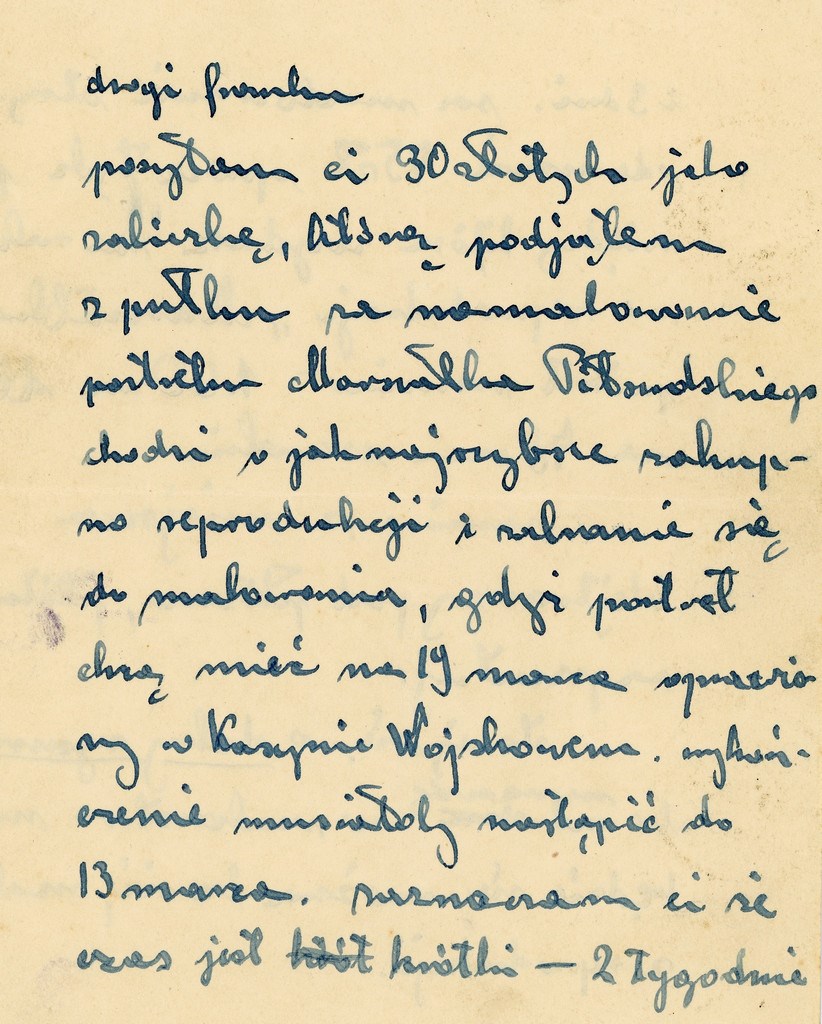 drogi franku
posyłam ci 30 złotych jako
zaliczkę, którą podjąłem
z pułku za namalowanie
portretu Marszałka Piłsudskiego
chodzi o jaknajszybsze zakup-
no reprodukcji i zabranie się
do malowania, gdyż portret
chcą mieć na 19 marca oprawio
ny w Kasynie Wojskowem. wykoń-
czenie musiałoby nastąpić do
13 marca. zaznaczam ci że
czas jest krótki — 2 tygodnie